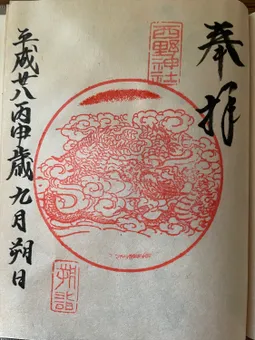 奉拝
西野神社
平成廿八丙申歳九月朔日